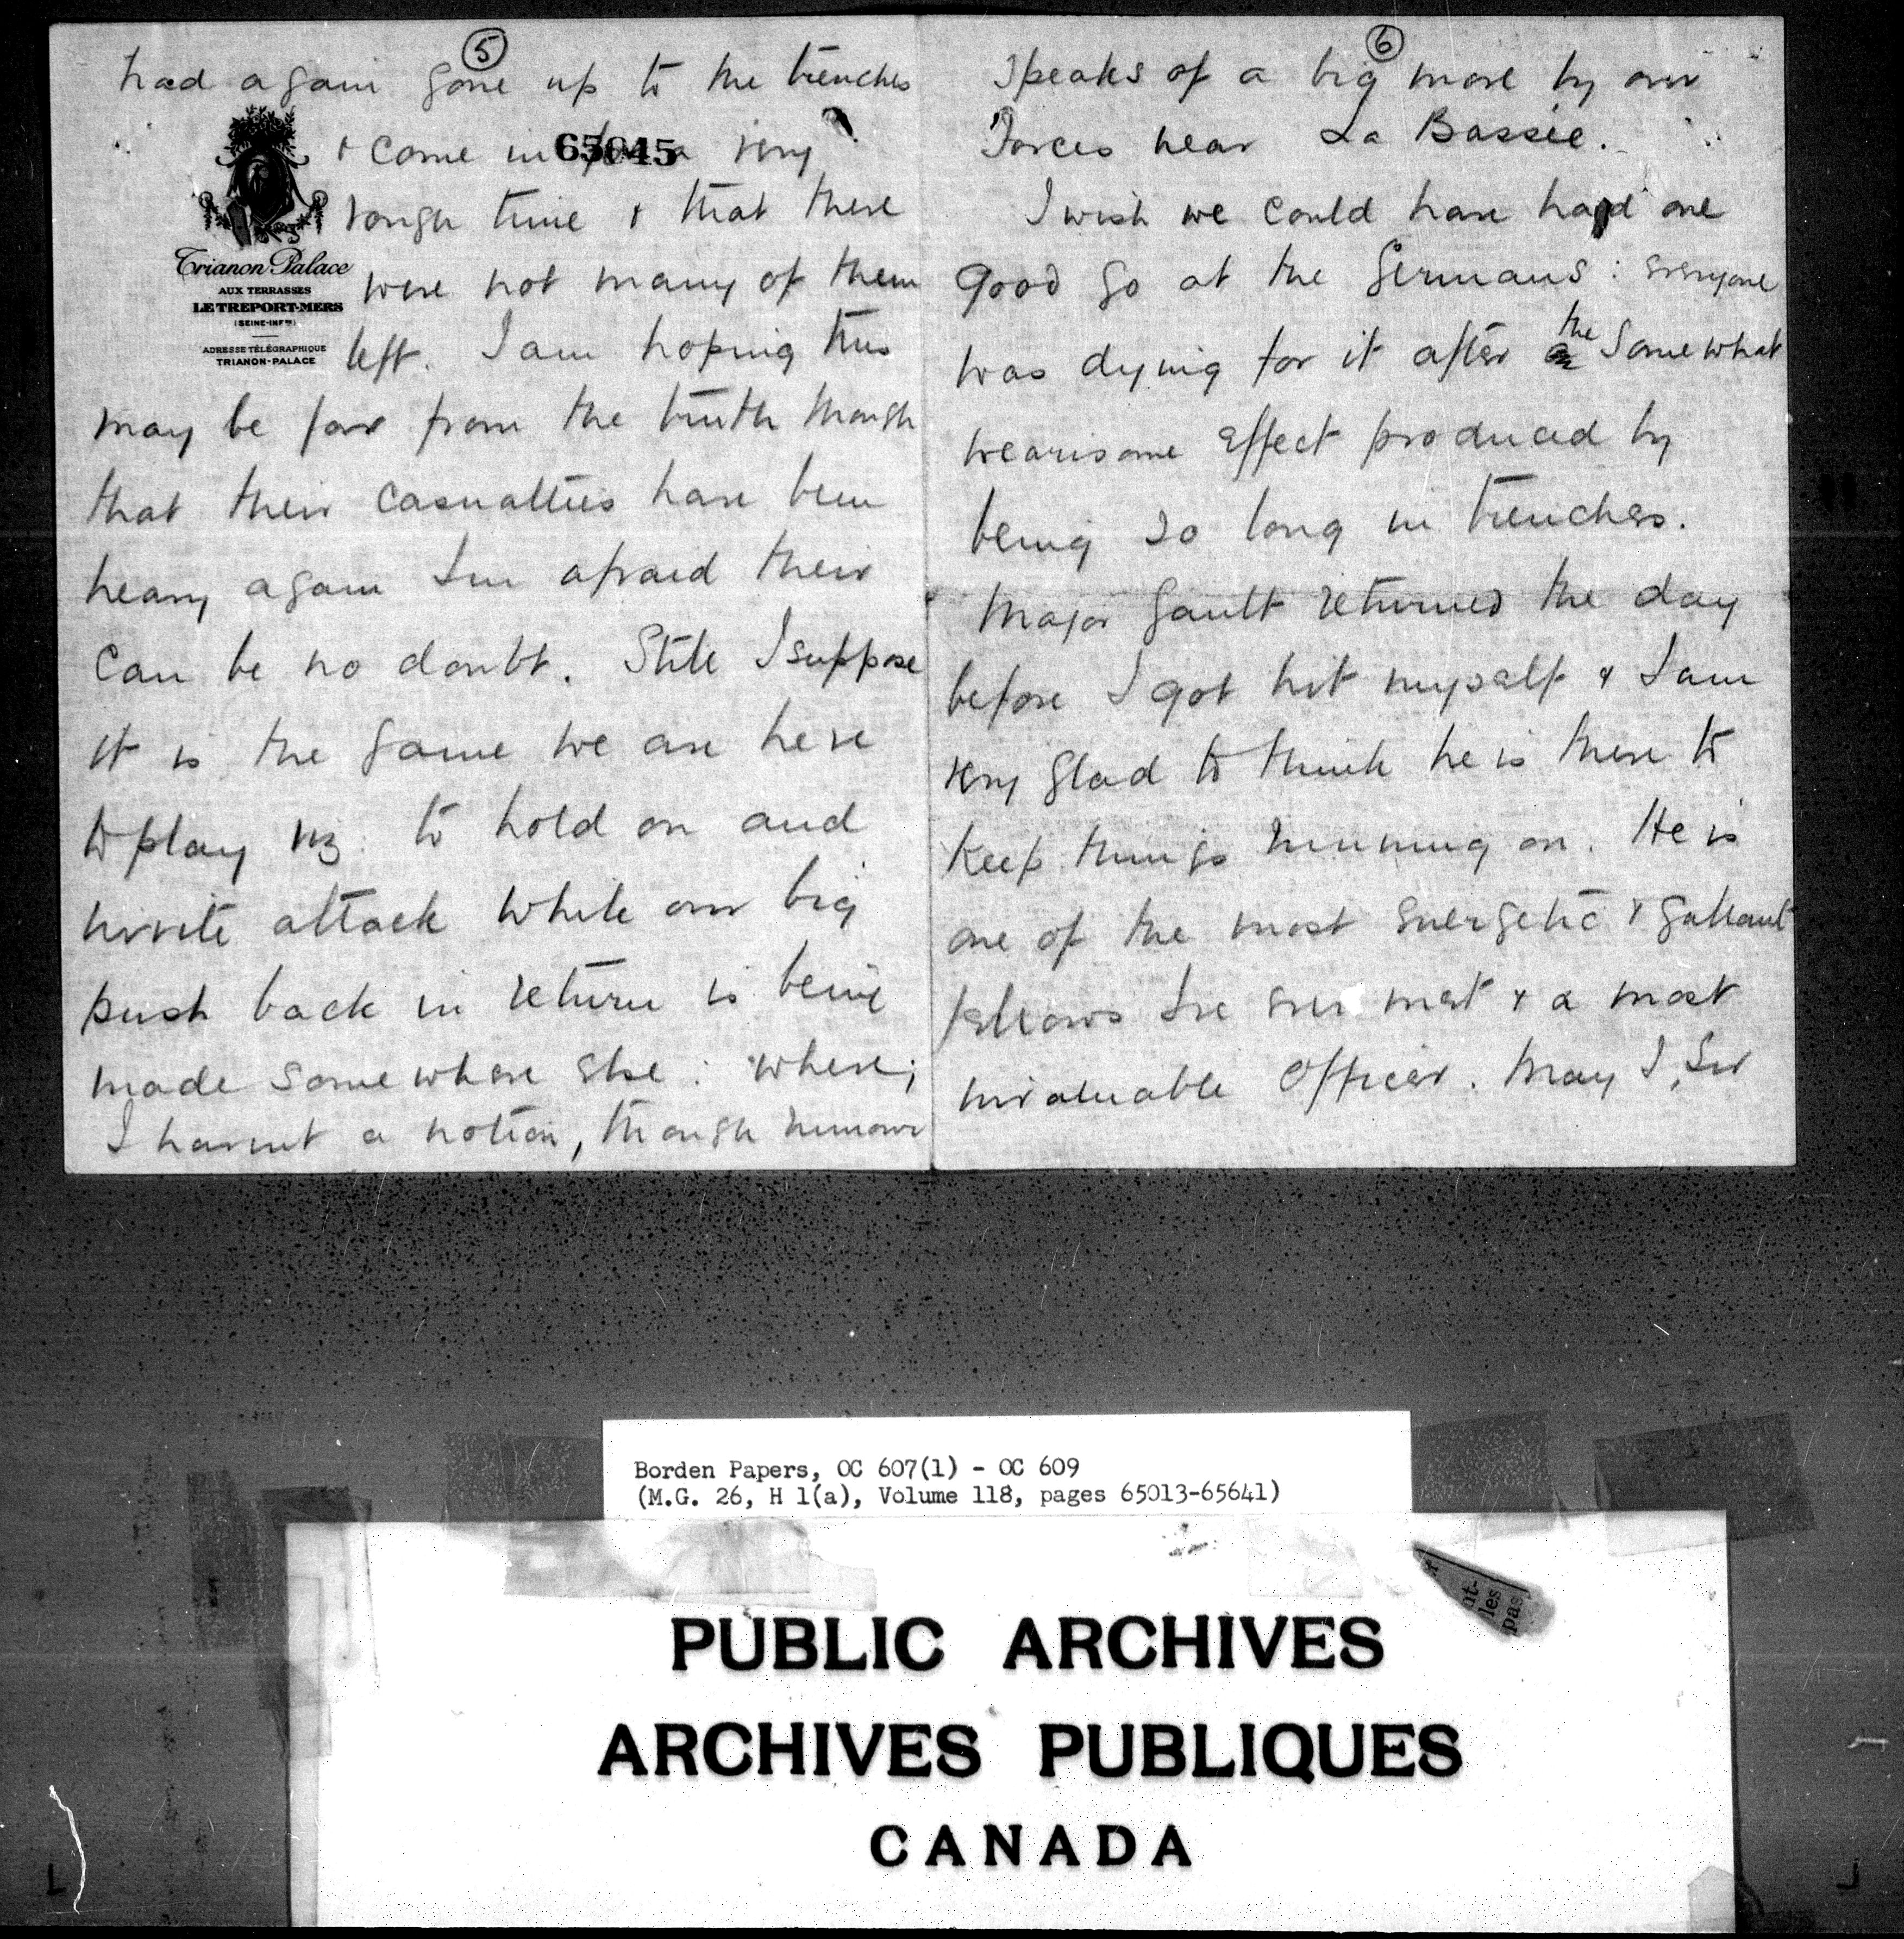 5
had again gone up to the trenches
& come in for a very
65045
rough time & that there
were not many of them
left. I am hoping this
Trianon Palace
AUX TERRASSES
LE TREPORT-MERS
(SEINE-INFRE)
ADRESSE TÉLÉGRAPHIQUE
TRIANON-PALACE
may be far from the truth though
that their casualties have been
heavy again I'm afraid their
can be no doubt. Still I suppose
it is the game we are here
to play viz: to hold on and
invite attack while our big
push back in return is being
made somewhere else: where;
I havnt a notion, though rumour
6
speaks of a big move by our
Forces near La Bassée.
I wish we could have had one
good go at the Germans: everyone
was dying for it after the somewhat
wearisome effect produced by
being so long in trenches.
Major Gault returned the day
before I got hit myself & I am
very glad to think he is there to
keep things humming on. He is
one of the most energetic & gallant
fellows I've ever met & a most
invaluable Officer. May I, Sir
Borden Papers, OC 607(1) - OC 609
(M.G. 26, H 1(a), Volume 118, pages 65013-65641)
ut-
les
pas
PUBLIC ARCHIVES
ARCHIVES PUBLIQUES
CANADA